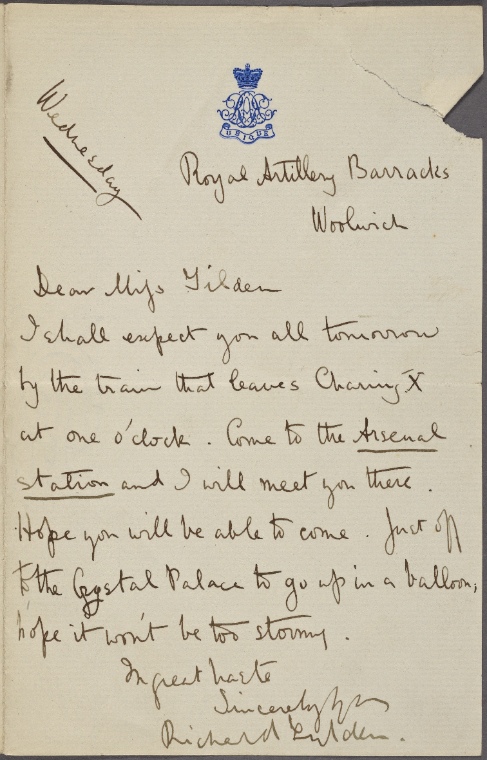 Wednesday
UBIQUE
Royal Artillery Barracks
Woolwich
Dear Miss Tilden
I shall expect you all tomorrow
by the train that leaves Charing X
at one o'clock. Come to the Arsenal
station and I will meet you there.
Hope you will be able to come. Just off
to the Crystal Palace to go up in a balloon,
hope it won't be too stormy.
In great haste
Sincerely yrs
Richard